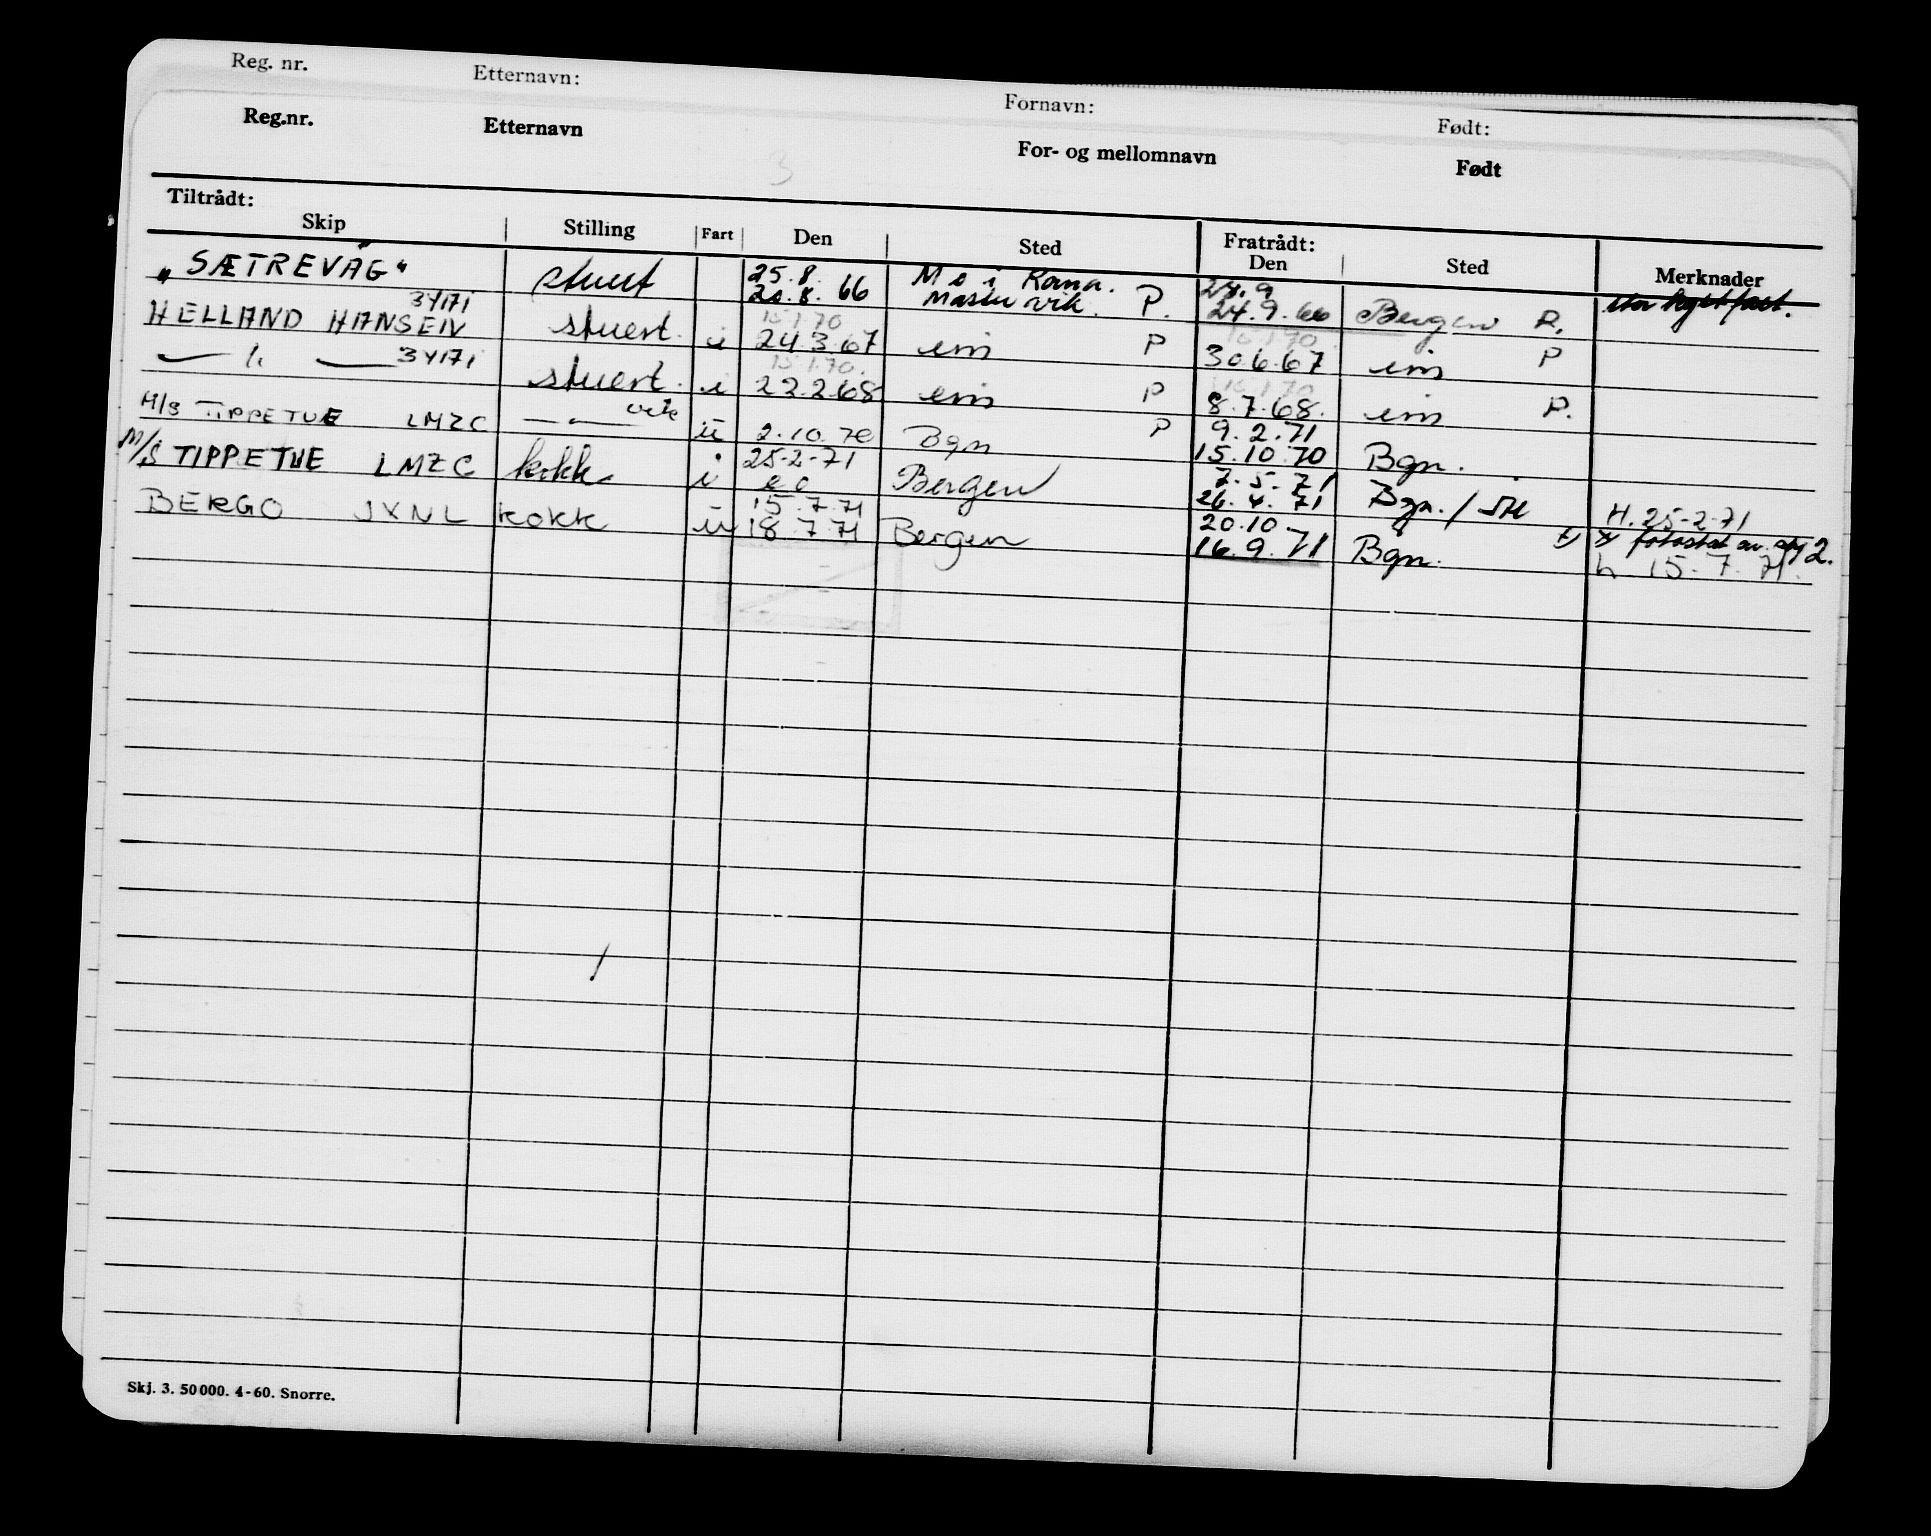 Reg. nr. Etternavn: Fornavn: Født:
Reg.nr. Etternavn For- og mellomnavn Født
3
Tiltrådt: Fratrådt:
Skip Stilling Fart Den Sted Den Sted Merknader
25.8. 24.9
„SÆTREVÅG" stuert 20.8. 66 Mastrevik. P. 24.9.66 Bergen P.
3YI7I 15.1.70
HELLAND HANSEN stuert. i 24.3.67 eim P 30.6.67 eim P
3YI7I 15.1.70. 15.1.70
— " — stuert. i 22.2.68 eim P 8.7.68. eim P.
9.2.71
M/S TIPPETUE LMZC — " — u 2.10.70 Bgn P 15.10.70 Bgn.
25-2-71 7.5.71
M/S TIPPETUE LMZC kokk i Bergen 26.4.71 Bgn. / H. 25-2-71
15.7.71 20.10. fotostat av 2.
BERGO JXNL kokk u 18.7.71 Bergen 16.9.71 Bgn. h 15.7.71.
Skj. 3. 50 000. 4-60. Snorre.